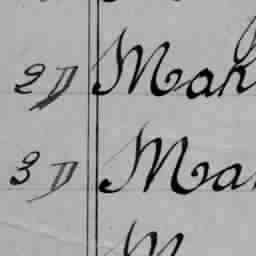 2 D Mah
3 D Ma
M